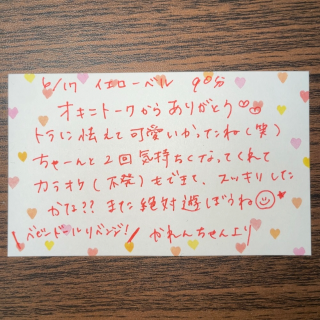 6/17 イエローベル 90分
オキニトークからありがとう♡
トラに怯えて可愛いかったね(笑)
ちゃーんと2回気持ちくなってくれて
カラオケ(不発)もできて、スッキリした
かな?? また絶対遊ぼうね☺
\ベビードールリベンジ!/ かれんちゃんより